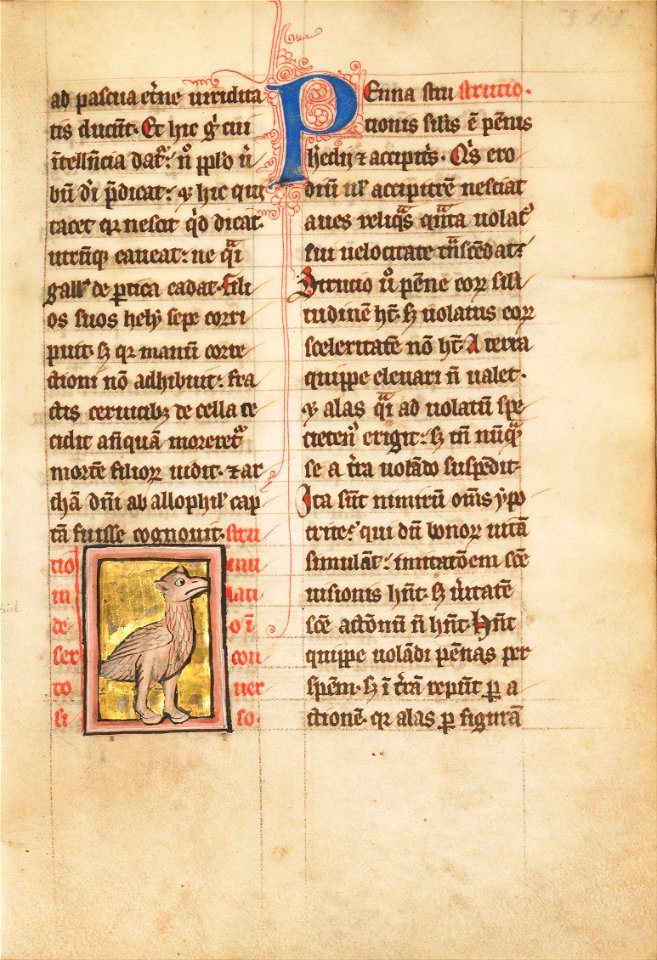 ad pascua et̃ne uiridita
tis ducūt. Et hic g̃ cui
ītellñcia dat̃: ñ pplõ ũ
bũ dĩ p̃dicat: ⁊ hic qui
tacet qr nescit q̃d dicat.
utrũq caueat: ne q̃i
gall' de ꝑtica cadat. Fili
os suos hely sepe corri
puit. sꝫ qr manũ corre
ctioni nõ adhibuit: fra
ctis ceruicibꝫ de cella ce
cidit añquã moreret̃
mortẽ filioꝝ uidit. ⁊ ar
chã dñi ab allophil' cap
tã fuisse cognouit. stru
tio
in
de
ser
to
si
mu
lati
o ĩ
con
uer
so.
PEnna stru strucio.
tionis silis ẽ pẽnis
hedii ⁊ accipit̃s. Q̃s ero
diũ ul' accipitrẽ nesciat
aues reliq̃s q̃nta uolat̃
sui uelocitate t̃nscẽdat:
Strucio ũ pẽne eoꝝ sili
tudinẽ hƷt. sꝫ uolatus eoꝝ
sceleritatẽ nõ hƷt. A terra
quippe eleuari ñ ualet.
⁊ alas q̃i ad uolatũ spe
cieten̾ erigit: sꝫ tñ nũq̃
se a t̃ra uolãdo suspẽdit.
Ita sũt nimirũ om̃s ypo
crite: qui dũ bonoꝝ uitã
simulãt: imitatõem scẽ
uisionis hñt. sꝫ ũitatẽ
scẽ actõnũ ñ hñt. Hñt
quippe uolãdi pẽnas per
spẽm. sꝫ ĩ t̃rã reput̃ ꝑ a
ctionẽ. qr alas ꝑ figurã